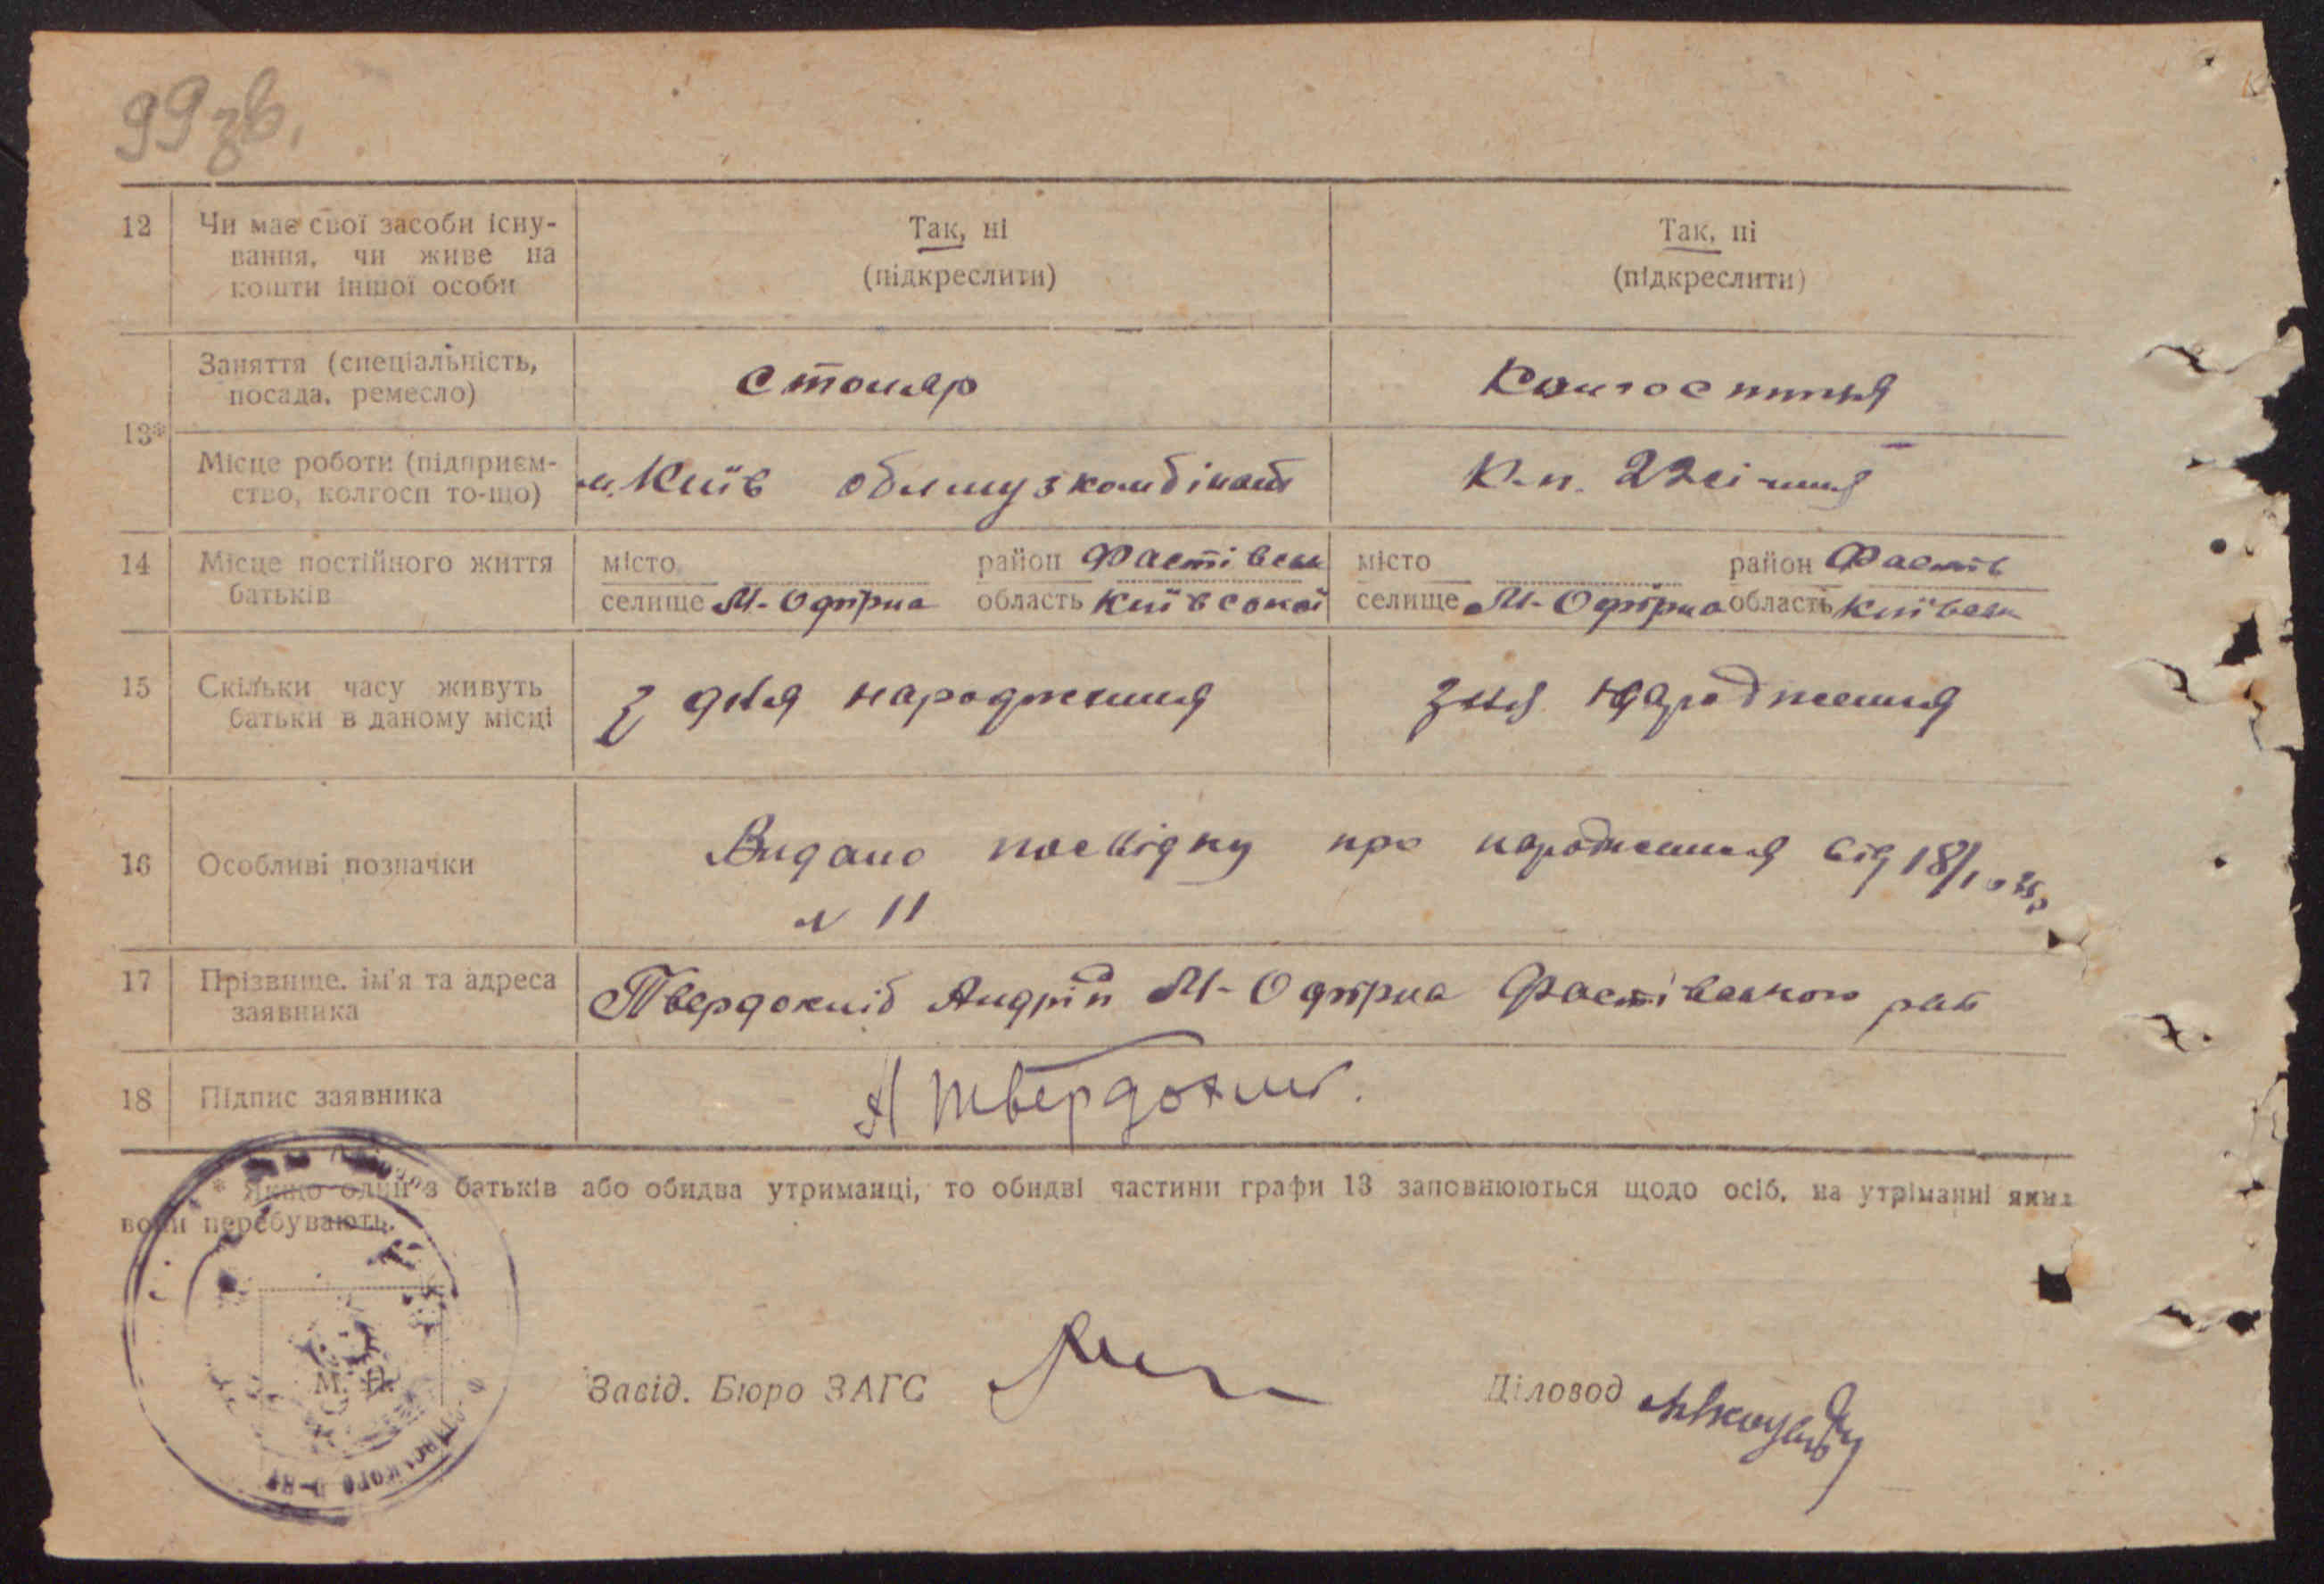 99зв.
12 Чи має свої засоби існу- Так, ні Так, ні
вання, чи живе на (підкреслити) (підкреслити)
кошти іншої особи
13* Заняття (спеціальність, столяр Колгоспниця
посада, ремесло)
Місце роботи (підприєм- м. Київ облмузкомбінат К.п. 22 січня
ство, колгосп то-що)
14 Місце постійного життя місто район Фастівськ місто район Фастів
батьків селище М-Офірна область Київської селище М-Офірна область Київськ
15 Скільки часу живуть з дня народження з дня народження
батьки в даному місці
16 Особливі позначки Видано посвідку про народження від 18/I
№ 11
17 Прізвище, ім'я та адреса Твердохліб Андрій М-Офірна Фастівського рай
заявника
18 Підпис заявника А Твердохліб.
* Якщо один з батьків або обидва утриманці, то обидві частини графи 13 заповнюються щодо осіб, на утріманні яких
вони перебувають.
М. П.
Завід. Бюро ЗАГС Діловод